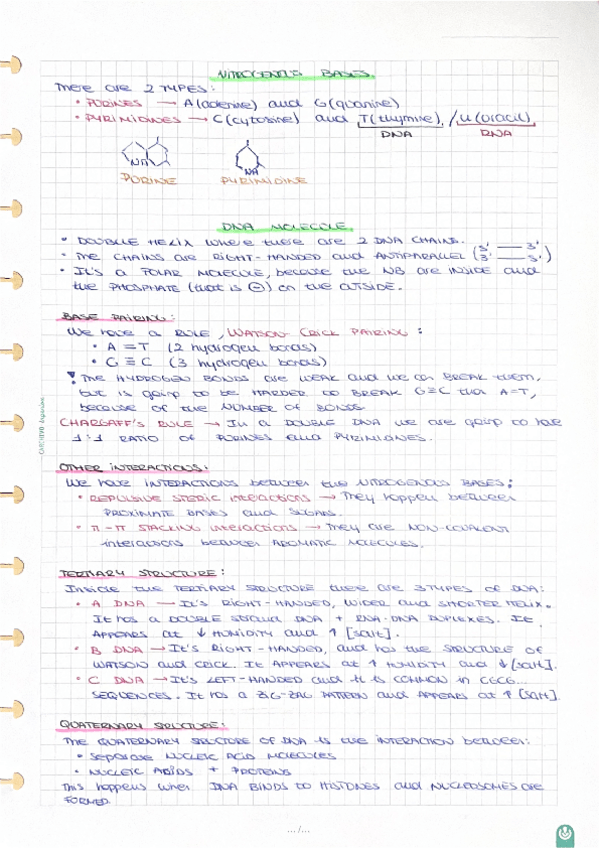 NITROGENOUS BASES.
There are 2 TYPES:
• PURINES → A(adenine) and G(guanine)
• PYRIMIDINES → C(cytosine) and T(thymine), /U(uracil),
DNA RNA
NA NA
PURINE PYRIMIDINE
DNA MOLECULE.
• DOUBLE HELIX where there are 2 DNA CHAINS.
• THE CHAINS are RIGHT-HANDED and ANTIPARALLEL (5' — 3' / 3' — 5')
• IT'S A POLAR MOLECULE, because the NB are INSIDE and
the PHOSPHATE (that is ⊖) on the OUTSIDE.
BASE PAIRING:
We have a RULE, WATSON-CRICK PAIRING:
• A = T (2 hydrogen bonds)
• G ≡ C (3 hydrogen bonds)
! The HYDROGEN BONDS are WEAK and we can BREAK them,
but is going to be HARDER to BREAK G≡C than A=T,
because of the NUMBER of BONDS
CHARGAFF'S RULE → In a DOUBLE DNA we are going to have
1:1 RATIO of PURINES and PYRIMIDINES.
OTHER INTERACTIONS:
We have INTERACTIONS between the NITROGENOUS BASES:
• REPULSIVE STERIC interactions → They happen between
PROXIMATE BASES and SUGARS.
• π-π STACKING interactions → They are NON-COVALENT
interactions between AROMATIC MOLECULES.
TERTIARY STRUCTURE:
Inside the TERTIARY STRUCTURE there are 3 TYPES of DNA:
• A DNA → It's RIGHT-HANDED, WIDER and SHORTER HELIX.
It has a DOUBLE strand DNA + RNA-DNA DUPLEXES. It
APPEARS at ↓ HUMIDITY and ↑ [salt].
• B DNA → It's RIGHT-HANDED, and has the STRUCTURE OF
WATSON and CRICK. It APPEARS at ↑ HUMIDITY and ↓ [salt].
• C DNA → It's LEFT-HANDED and it is COMMON in CGCG...
SEQUENCES. It has a ZIG-ZAG PATTERN and APPEARS at ↑ [salt].
QUATERNARY STRUCTURE:
The QUATERNARY STRUCTURE OF DNA is the INTERACTION between:
• Separate NUCLEIC ACID MOLECULES
• NUCLEIC ACIDS + PROTEINS
This happens when DNA BINDS to HISTONES and NUCLEOSOMES are
FORMED
.../...